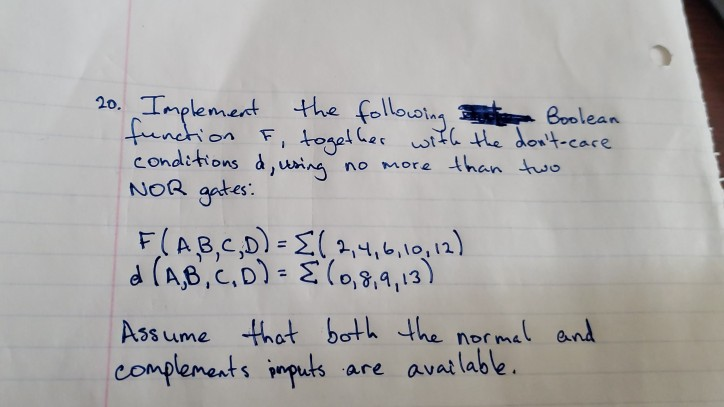 20. Implement the following Boolean
function F, together with the don't-care
conditions d, using no more than two
NOR gates:
F(A,B,C,D) = Σ(2,4,6,10,12)
d(A,B,C,D) = Σ(0,8,9,13)
Assume that both the normal and
complements inputs are available.